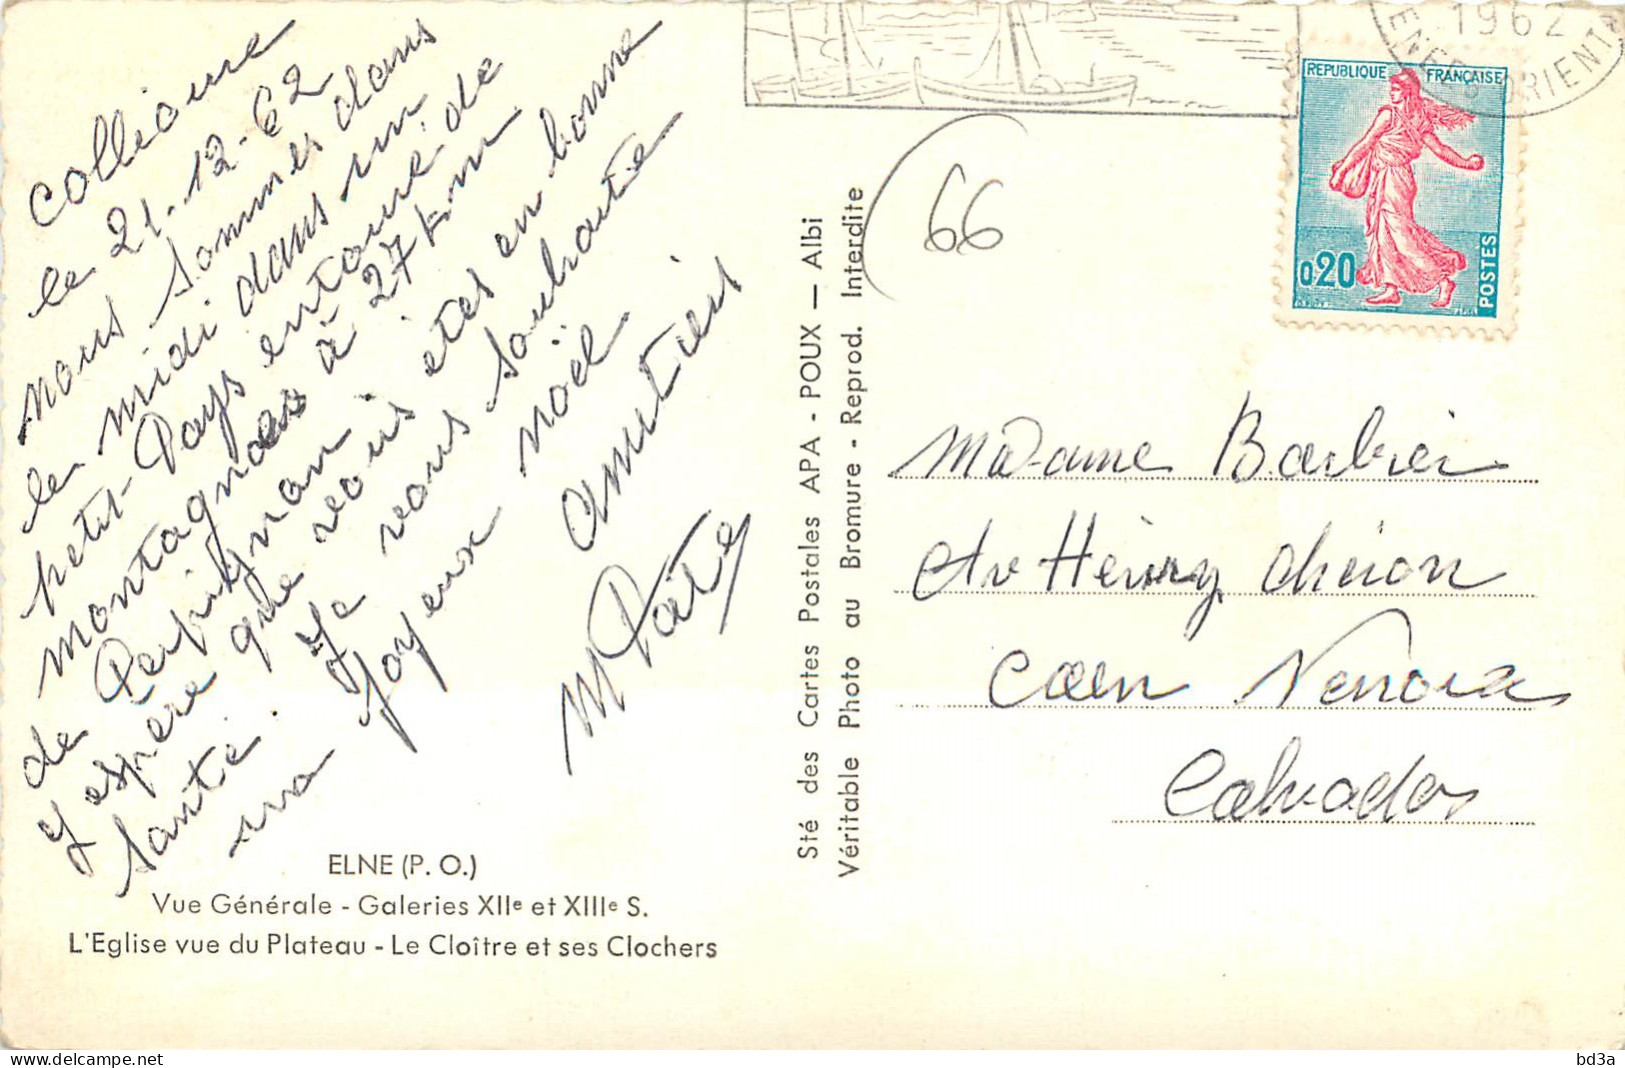 Collioure
le 21.12.62
nous sommes dans
le midi dans un
petit Pays entouré de
montagnes à 27 km
de Perpignan
J'espère que vous êtes en bonne
santé. Je vous souhaite
un Joyeux noël
amitiés
M Paty
ELNE (P. O.)
Vue Générale - Galeries XIIe et XIIIe S.
L'Eglise vue du Plateau - Le Cloître et ses Clochers
Sté des Cartes Postales APA - POUX — Albi
Véritable Photo au Bromure - Reprod. Interdite
66
1962
ENEES ORIENT
REPUBLIQUE FRANÇAISE
0,20
POSTES
Madame Barbier
Av Henry Chéron
Caen Venoix
Calvados
bd3a